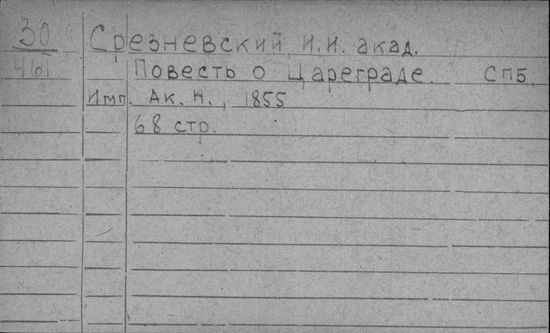 30 Срезневский, И.И. акад.
461 Повесть о Цареграде. СПБ,
Имп. Ак. Н., 1855
68 стр.